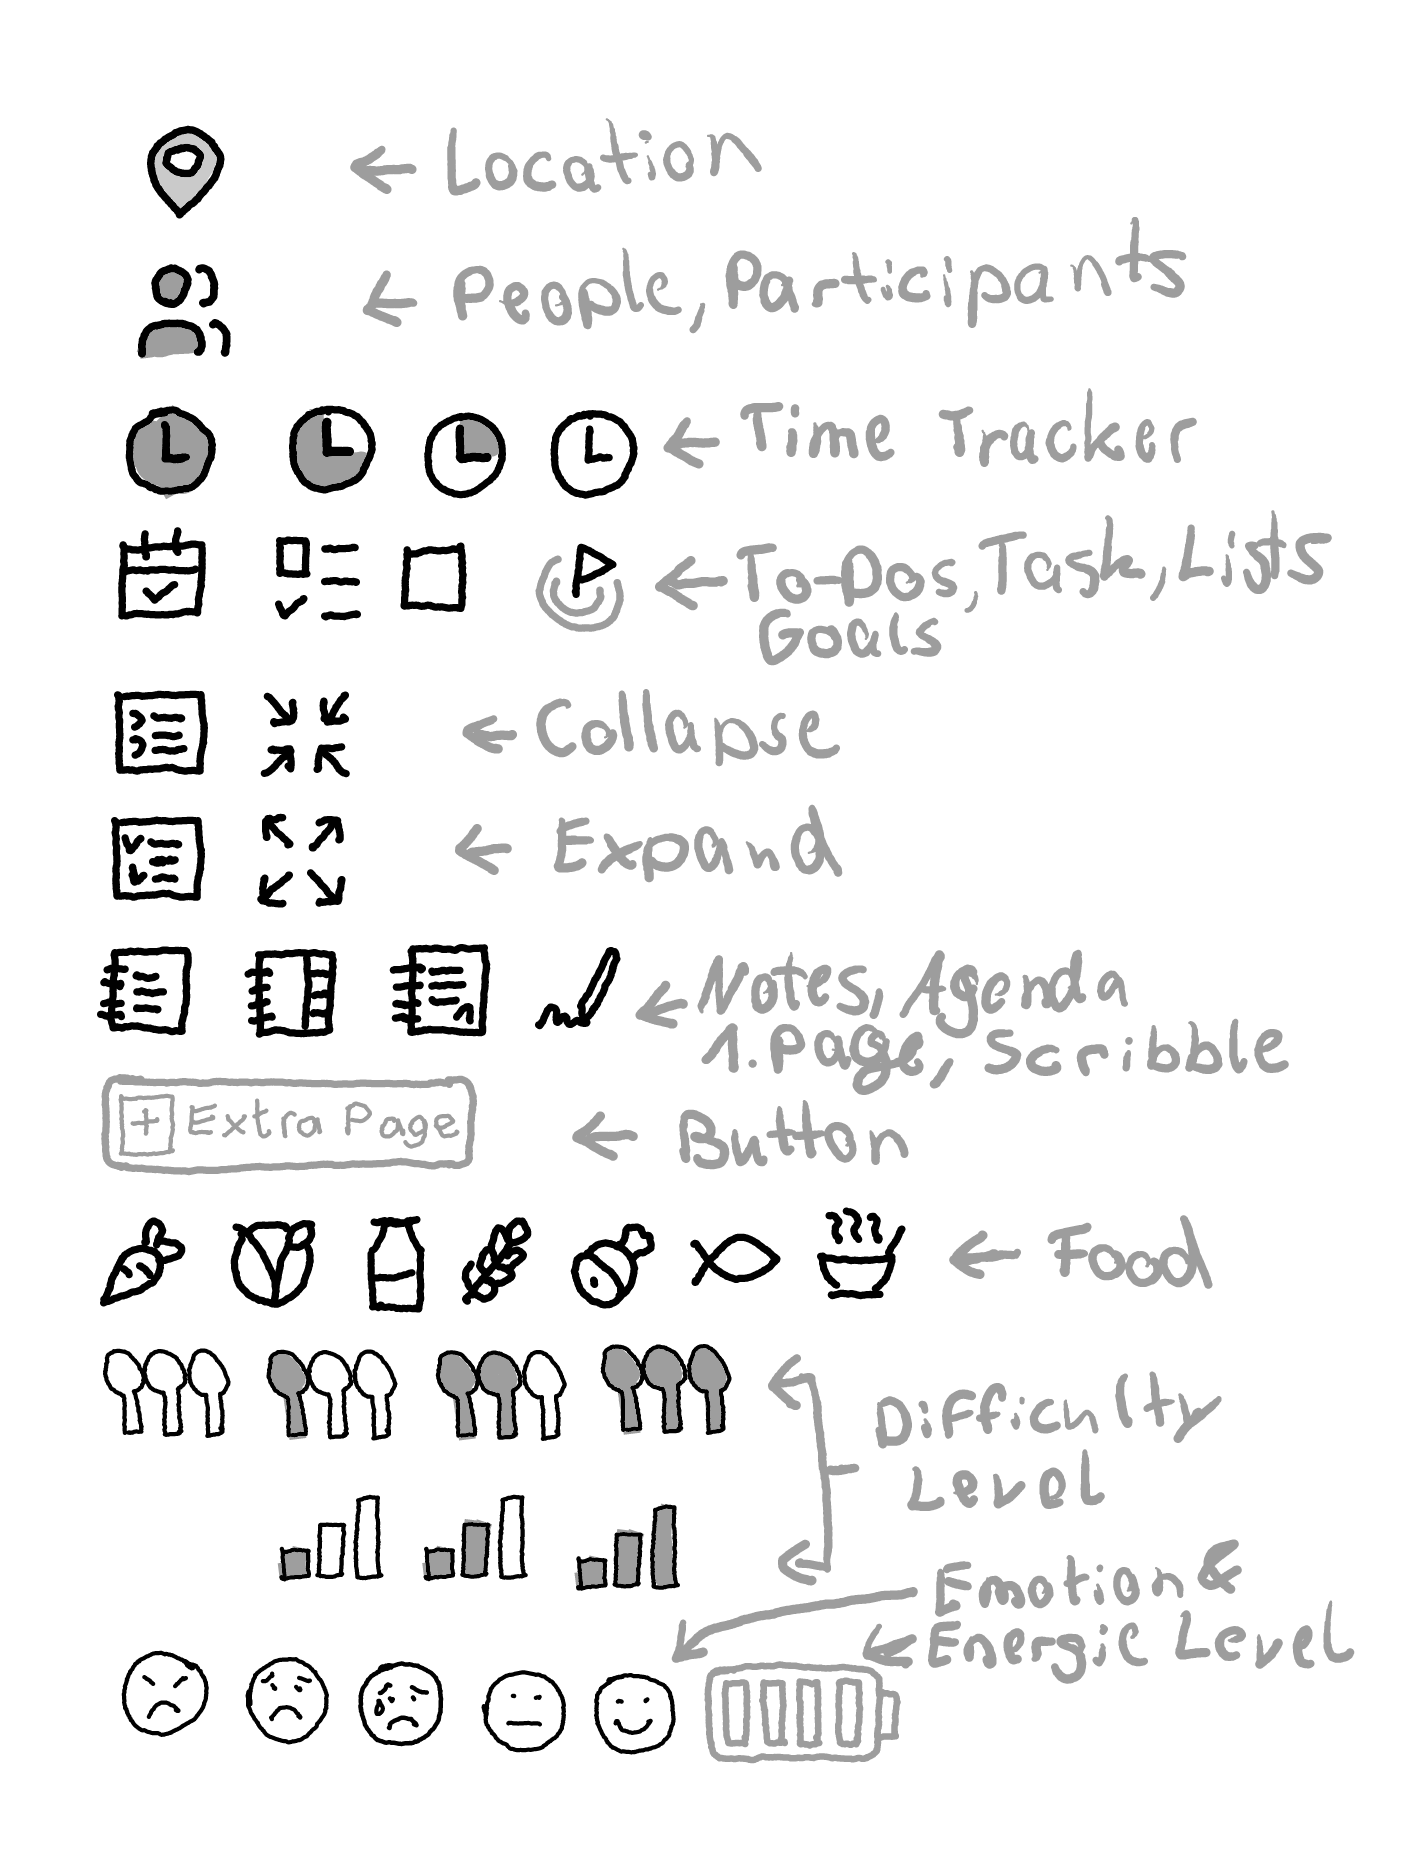 Location
People, Participants
Time Tracker
To-Dos, Task, Lists
Goals
Collapse
Expand
Notes, Agenda
1. Page, Scribble
+ Extra Page
Button
Food
Difficulty
Level
Emotion &
Energic Level